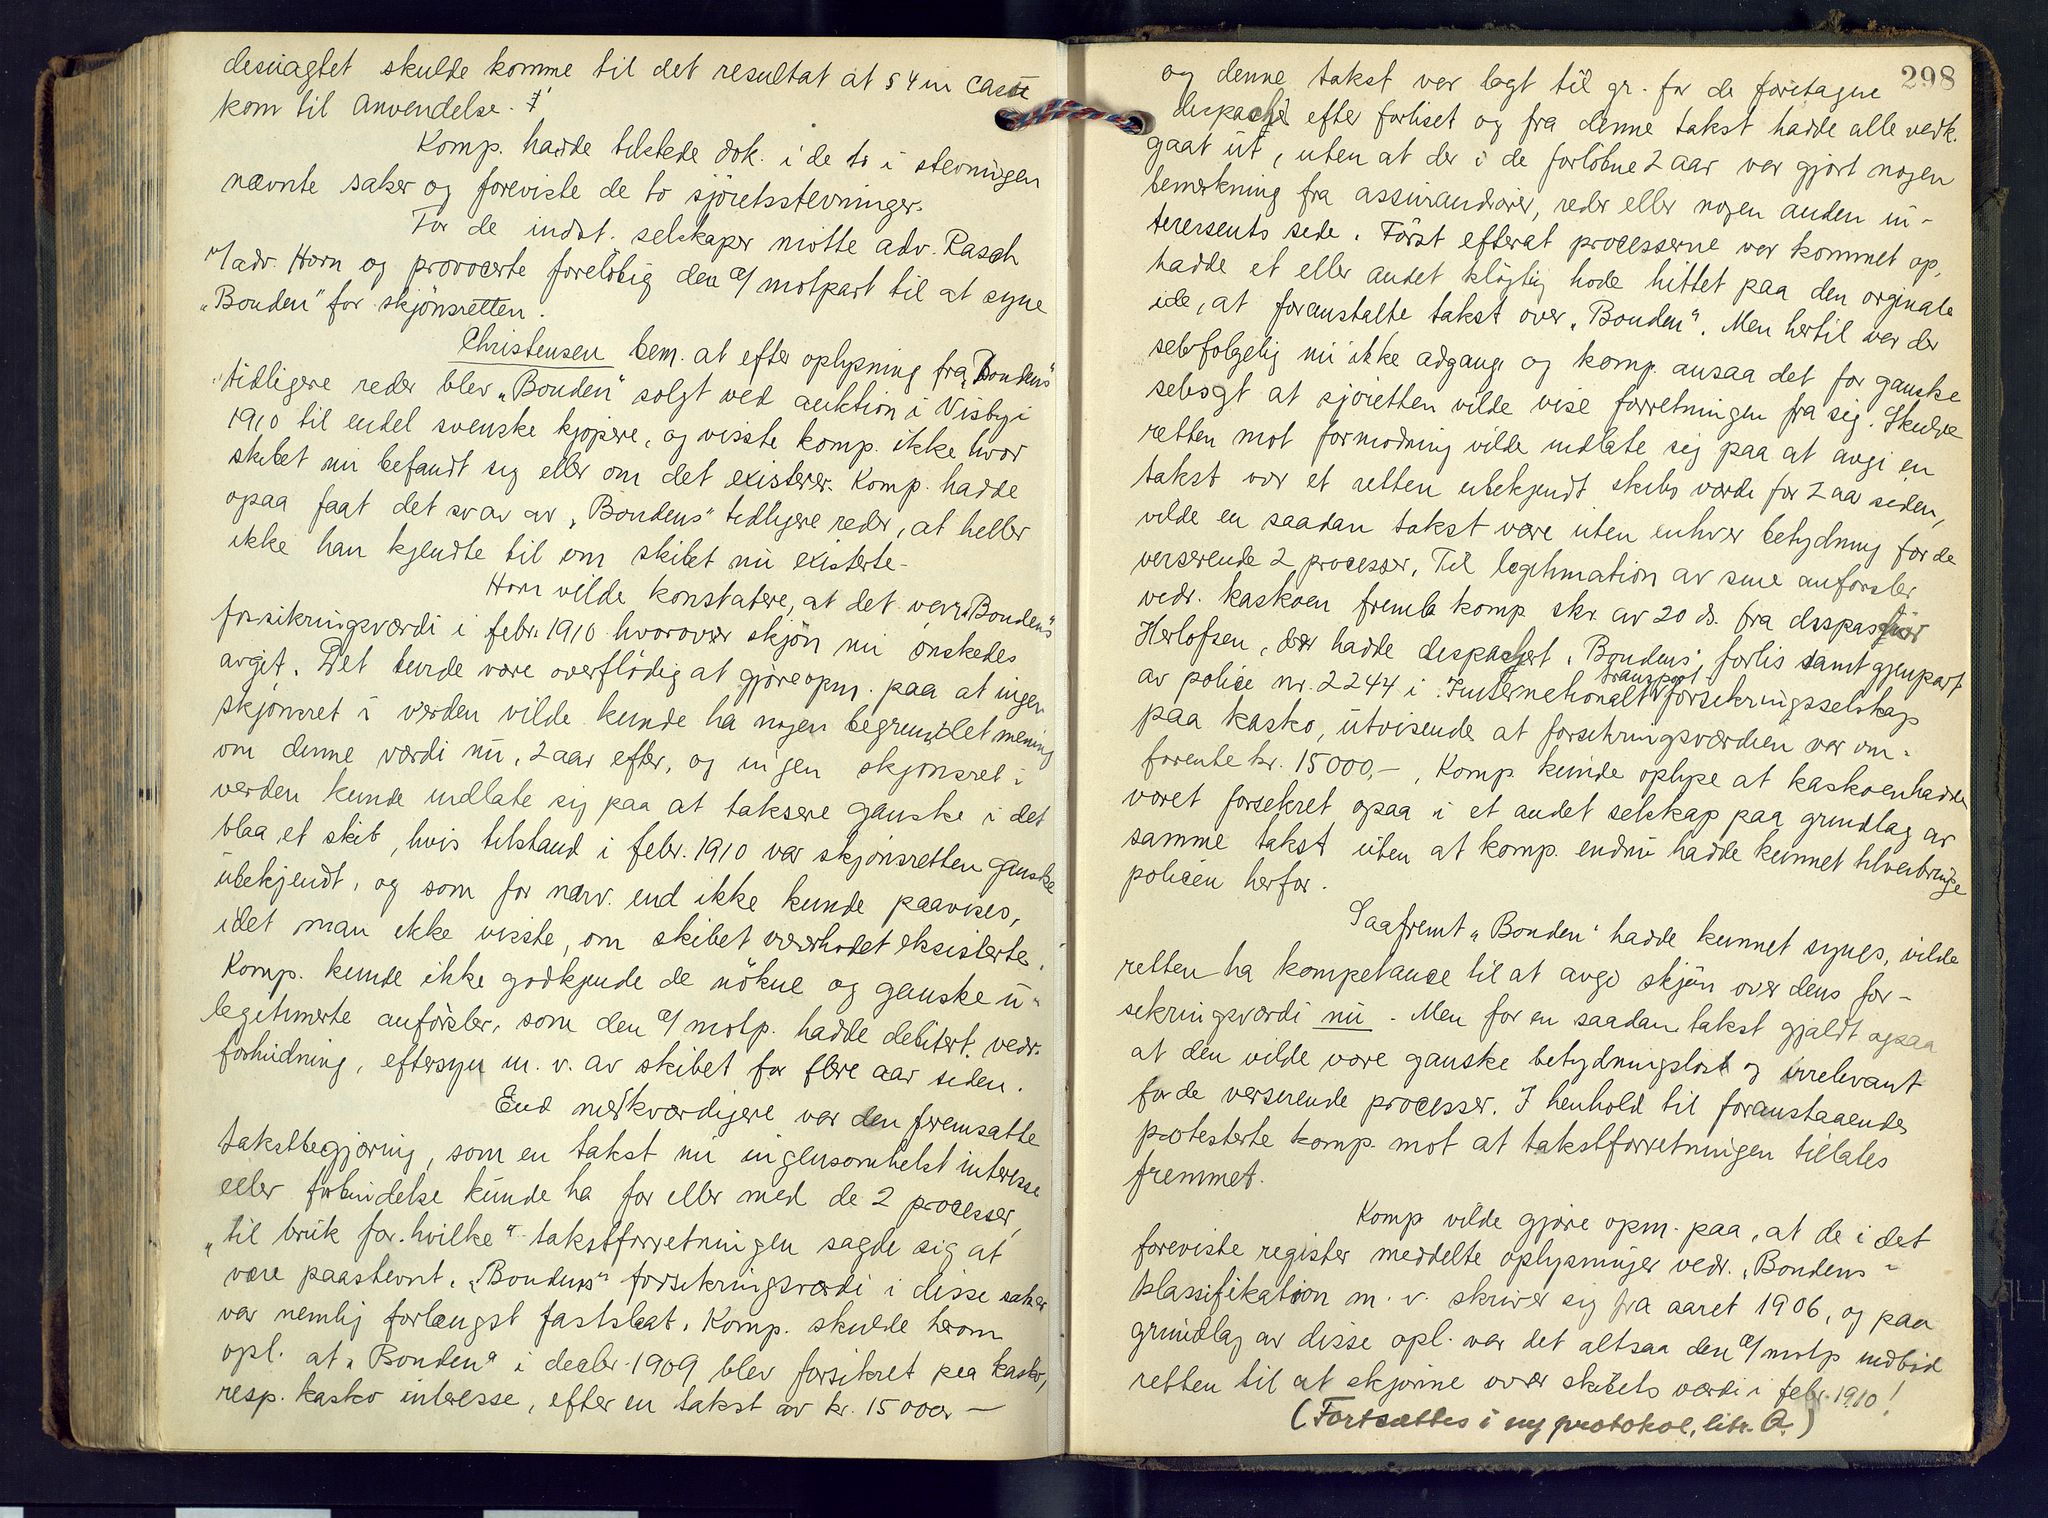 desuagtet skulde komme til det resultat at § 4 in casu
kom til anvendelse.
Komp. hadde tilstede dok. i de to i stevningen
nævnte saker og foreviste de to sjöretsstevninger.
For de indst. selskaper mötte adv. Rasch
v/ adv. Horn og provocerte foreløbig den a/ motpart til at syne
"Bonden" for skjönsretten.
Christensen bem. at efter oplysning fra "Bondens"
tidligere reder blev "Bonden" solgt ved auktion i Visby i
1910 til endel svenske kjøpere, og visste komp. ikke hvor
skibet nu befandt sig eller om det existerer. Komp. hadde
opaa faat det svar av "Bondens" tidligere reder, at heller
ikke han kjendte til om skibet nu existerte.
Horn vilde konstatere, at det var "Bondens"
forsikringsværdi i febr. 1910 hvorover skjön nu önskedes
avgit. Det burde være overflödig at gjöre opm. paa at ingen
skjönsret i verden vilde kunde ha nogen begrundet mening
om denne værdi nu, 2 aar efter, og ingen skjönsret i
verden kunde indlate sig paa at taksere ganske i det
blaa et skib, hvis tilstand i febr. 1910 var skjönsretten ganske
ubekjendt, og som for nærv. end ikke kunde paavises,
idet man ikke visste, om skibet overhodet eksisterte.
Komp. kunde ikke godkjende de nökne og ganske u-
legitimerte anførsler, som den a/ motp. hadde debitert vedr.
forhudning, eftersyn m. v. av skibet for flere aar siden.
End merkværdigere var den fremsatte
takstbegjæring, som en takst nu ingensomhelst interesse
eller forbindelse kunde ha for eller med de 2 processer,
"til bruk for hvilke" takstforretningen sagde sig at
være paastevnt. "Bondens" forsikringsværdi i disse saker
var nemlig forlængst fastslaat. Komp. skulde herom
opl. at "Bonden" i decbr. 1909 blev forsikret paa kasko,
resp. kasko interesse, efter en takst av kr. 15000 —
298
og denne takst var lagt til gr. for de foretagne
despacher efter forliset og fra denne takst hadde alle vedk.
gaat ut, uten at der i de forløbne 2 aar var gjort nogen
bemerkning fra assurandører, reder eller nogen anden in-
teressents side. Först efterat processerne var kommet op,
hadde et eller andet kløgtig hode hittet paa den orginale
ide, at foranstalte takst over "Bonden". Men hertil var der
selvfølgelig nu ikke adgang og komp. ansaa det for ganske
selvsagt at sjøretten vilde vise forretningen fra sig. Skulde
retten mot formodning vilde indlate sig paa at avgi en
takst over et retten ubekjendt skibs værdi for 2 aar siden,
vilde en saadan takst være uten enhver betydning for de
verserende 2 processer. Til legitimation av sine anførsler
vedr. kaskoen fremla komp. skr. av 20 ds. fra despaschör
Herlofsen, der hadde despachert "Bondens" forlis samt gjenpart
av police nr. 2244 i Internationalt transport forsikringsselskap
paa kasko, utvisende at forsikringsværdien var om-
forente kr. 15000,—. Komp. kunde oplyse at kaskoen hadde
været forsikret opaa i et andet selskap paa grundlag av
samme takst uten at komp. endnu hadde kunnet tilveiebringe
policen herfor.
Saafremt "Bonden" hadde kunnet synes, vilde
retten ha kompetance til at avgi skjön over dens for-
sikringsværdi nu. Men for en saadan takst gjaldt opsaa
at den vilde være ganske betydningsløst og irrelevant
for de verserende processer. I henhold til foranstaaende
protesterte komp. mot at takstforretningen tillates
fremmet.
Komp vilde gjøre opm. paa, at de i det
foreviste register meddelte oplysninger vedr. "Bondens"
klassifikation m. v. skriver sig fra aaret 1906, og paa
grundlag av disse opl. var det altsaa den a/ motp indbød
retten til at skjønne over skibets værdi i febr. 1910!
(Fortsættes i ny protokol, litr. Q.)